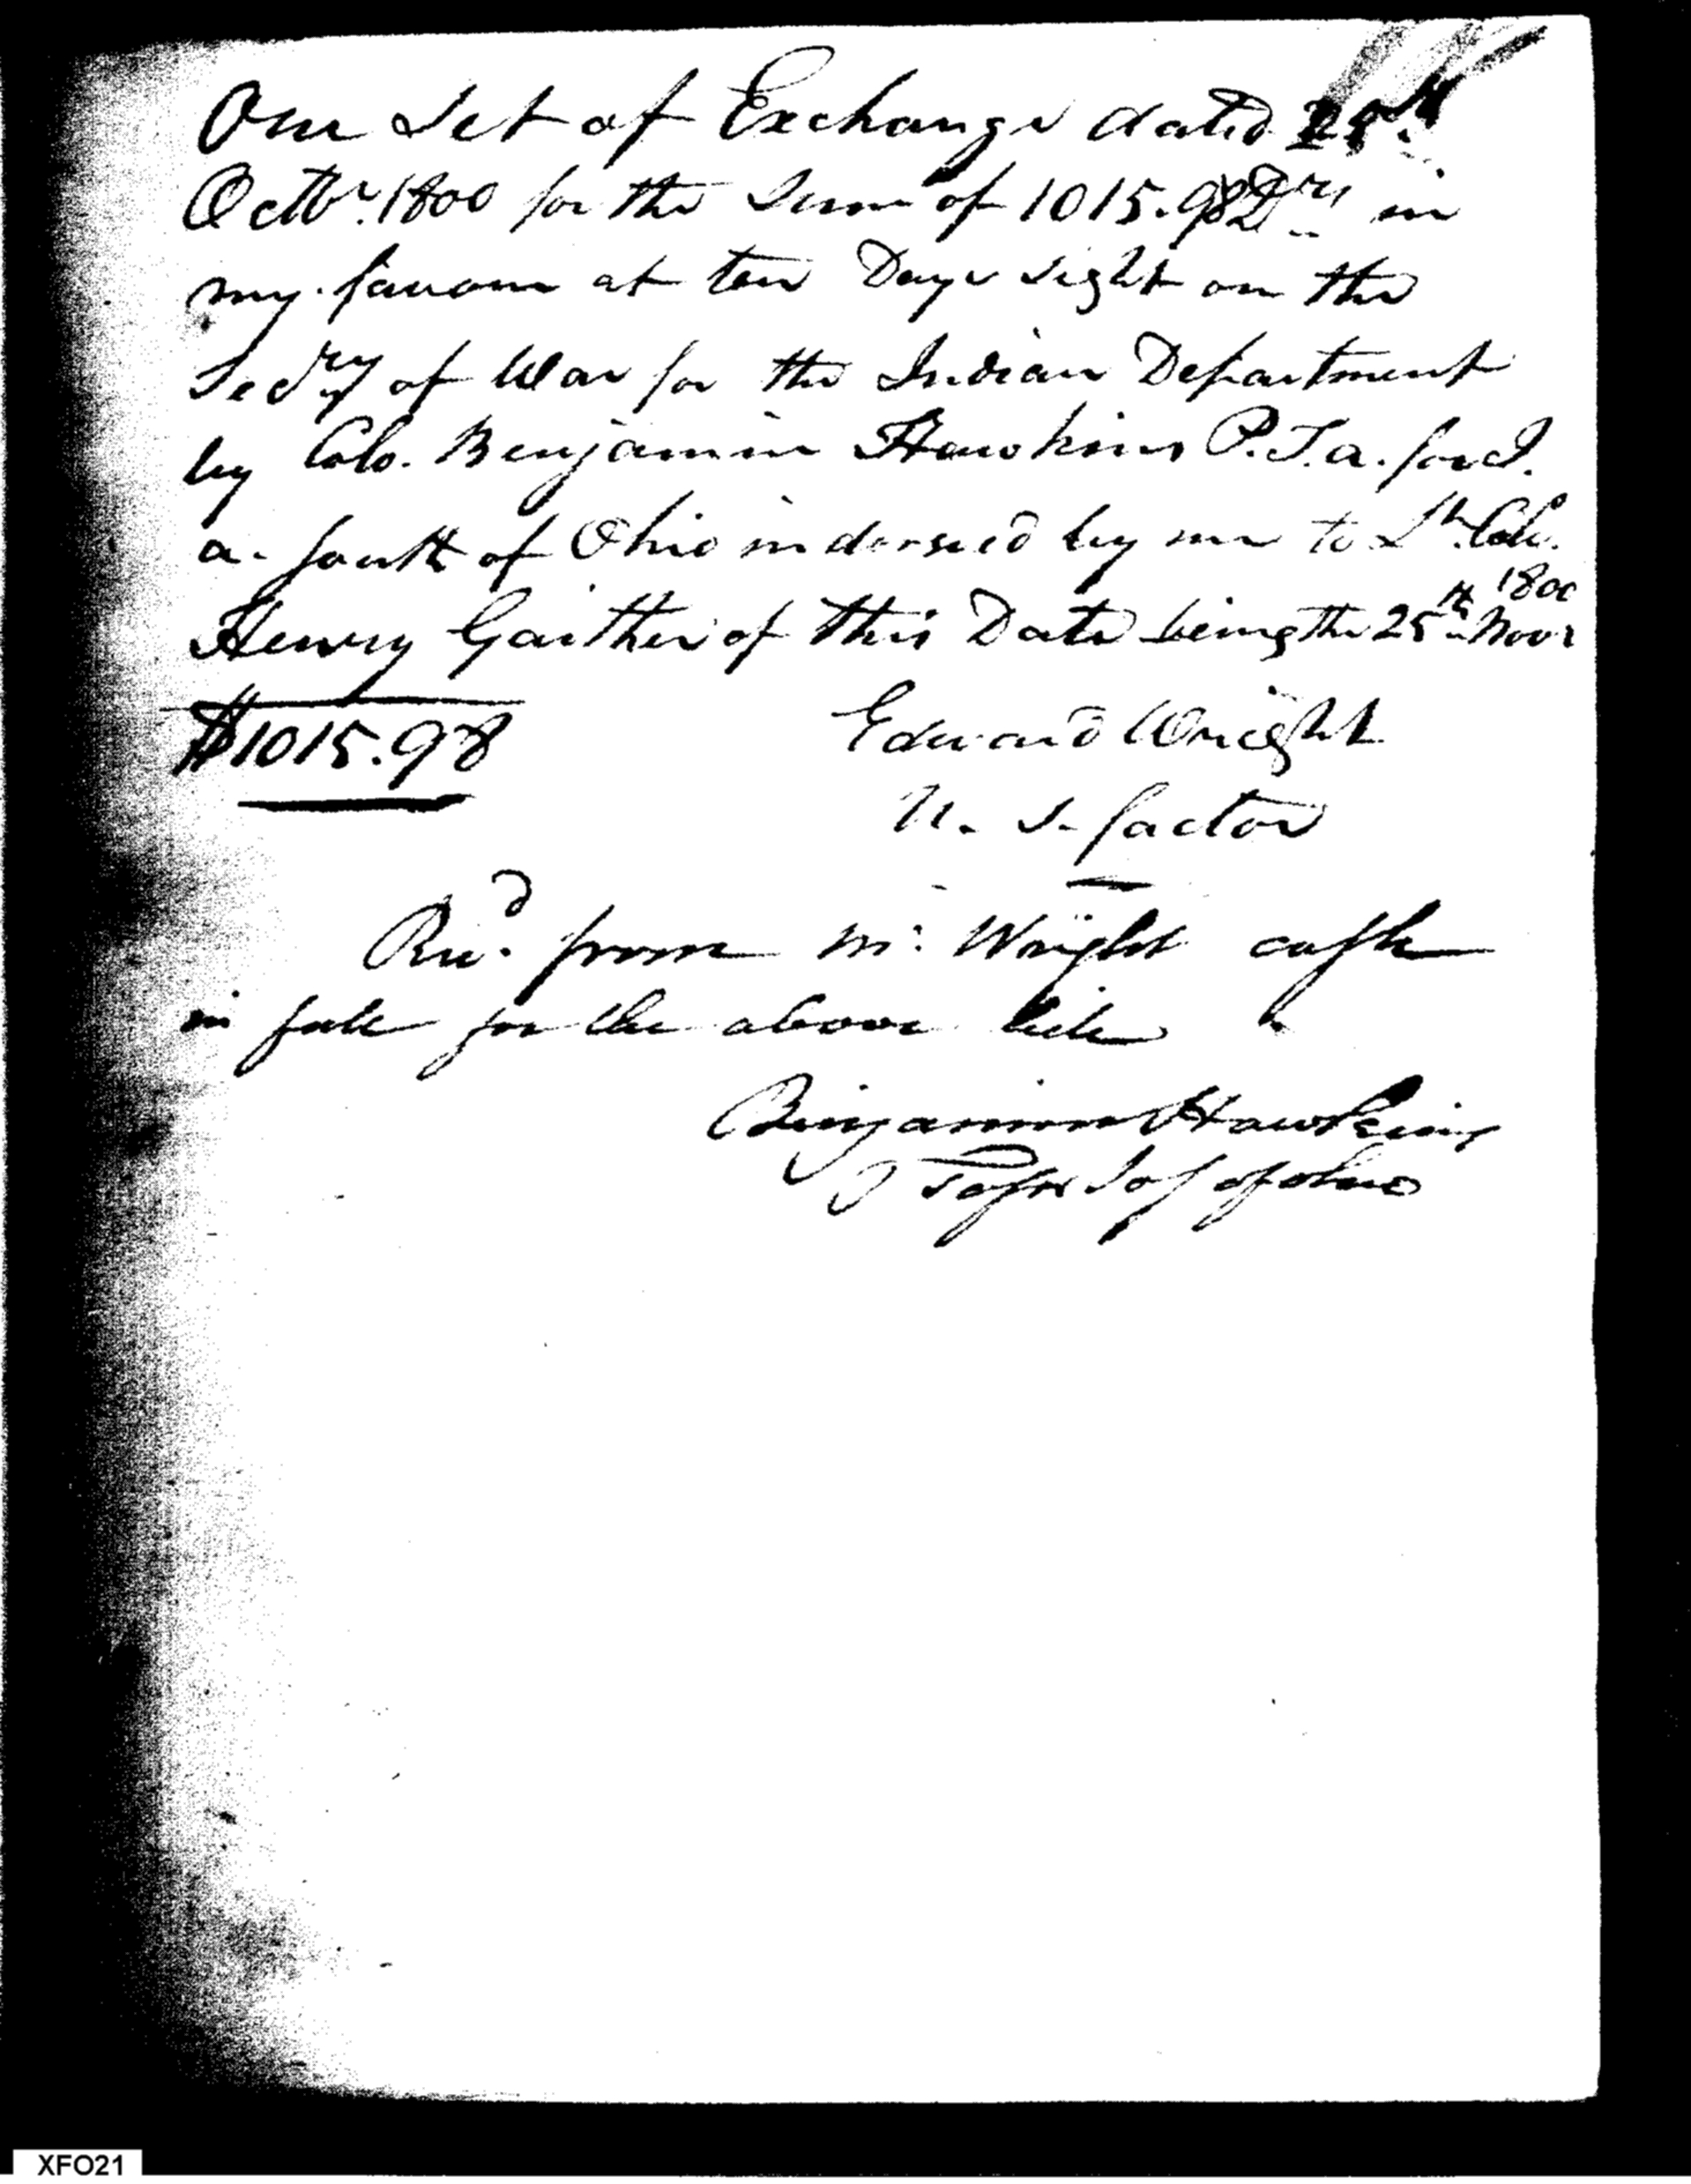 One Set of Exchange dated 25th
Octbr. 1800 for the Sum of 1015.98 Drs in
my favour at ten Days sight on the
Secry of War for the Indian Department
by Colo. Benjamin Hawkins P.T.a. for I.
a. South of Ohio indorsed by me to Lt. Colo.
Henry Gaither of this Date being the 25th Novr 1800
$1015.98 Edward Wright
U. S. factor
Recd. from Mr. Wright cash
in full for the above bill
Benjamin Hawkins
of Ohio
XFO21